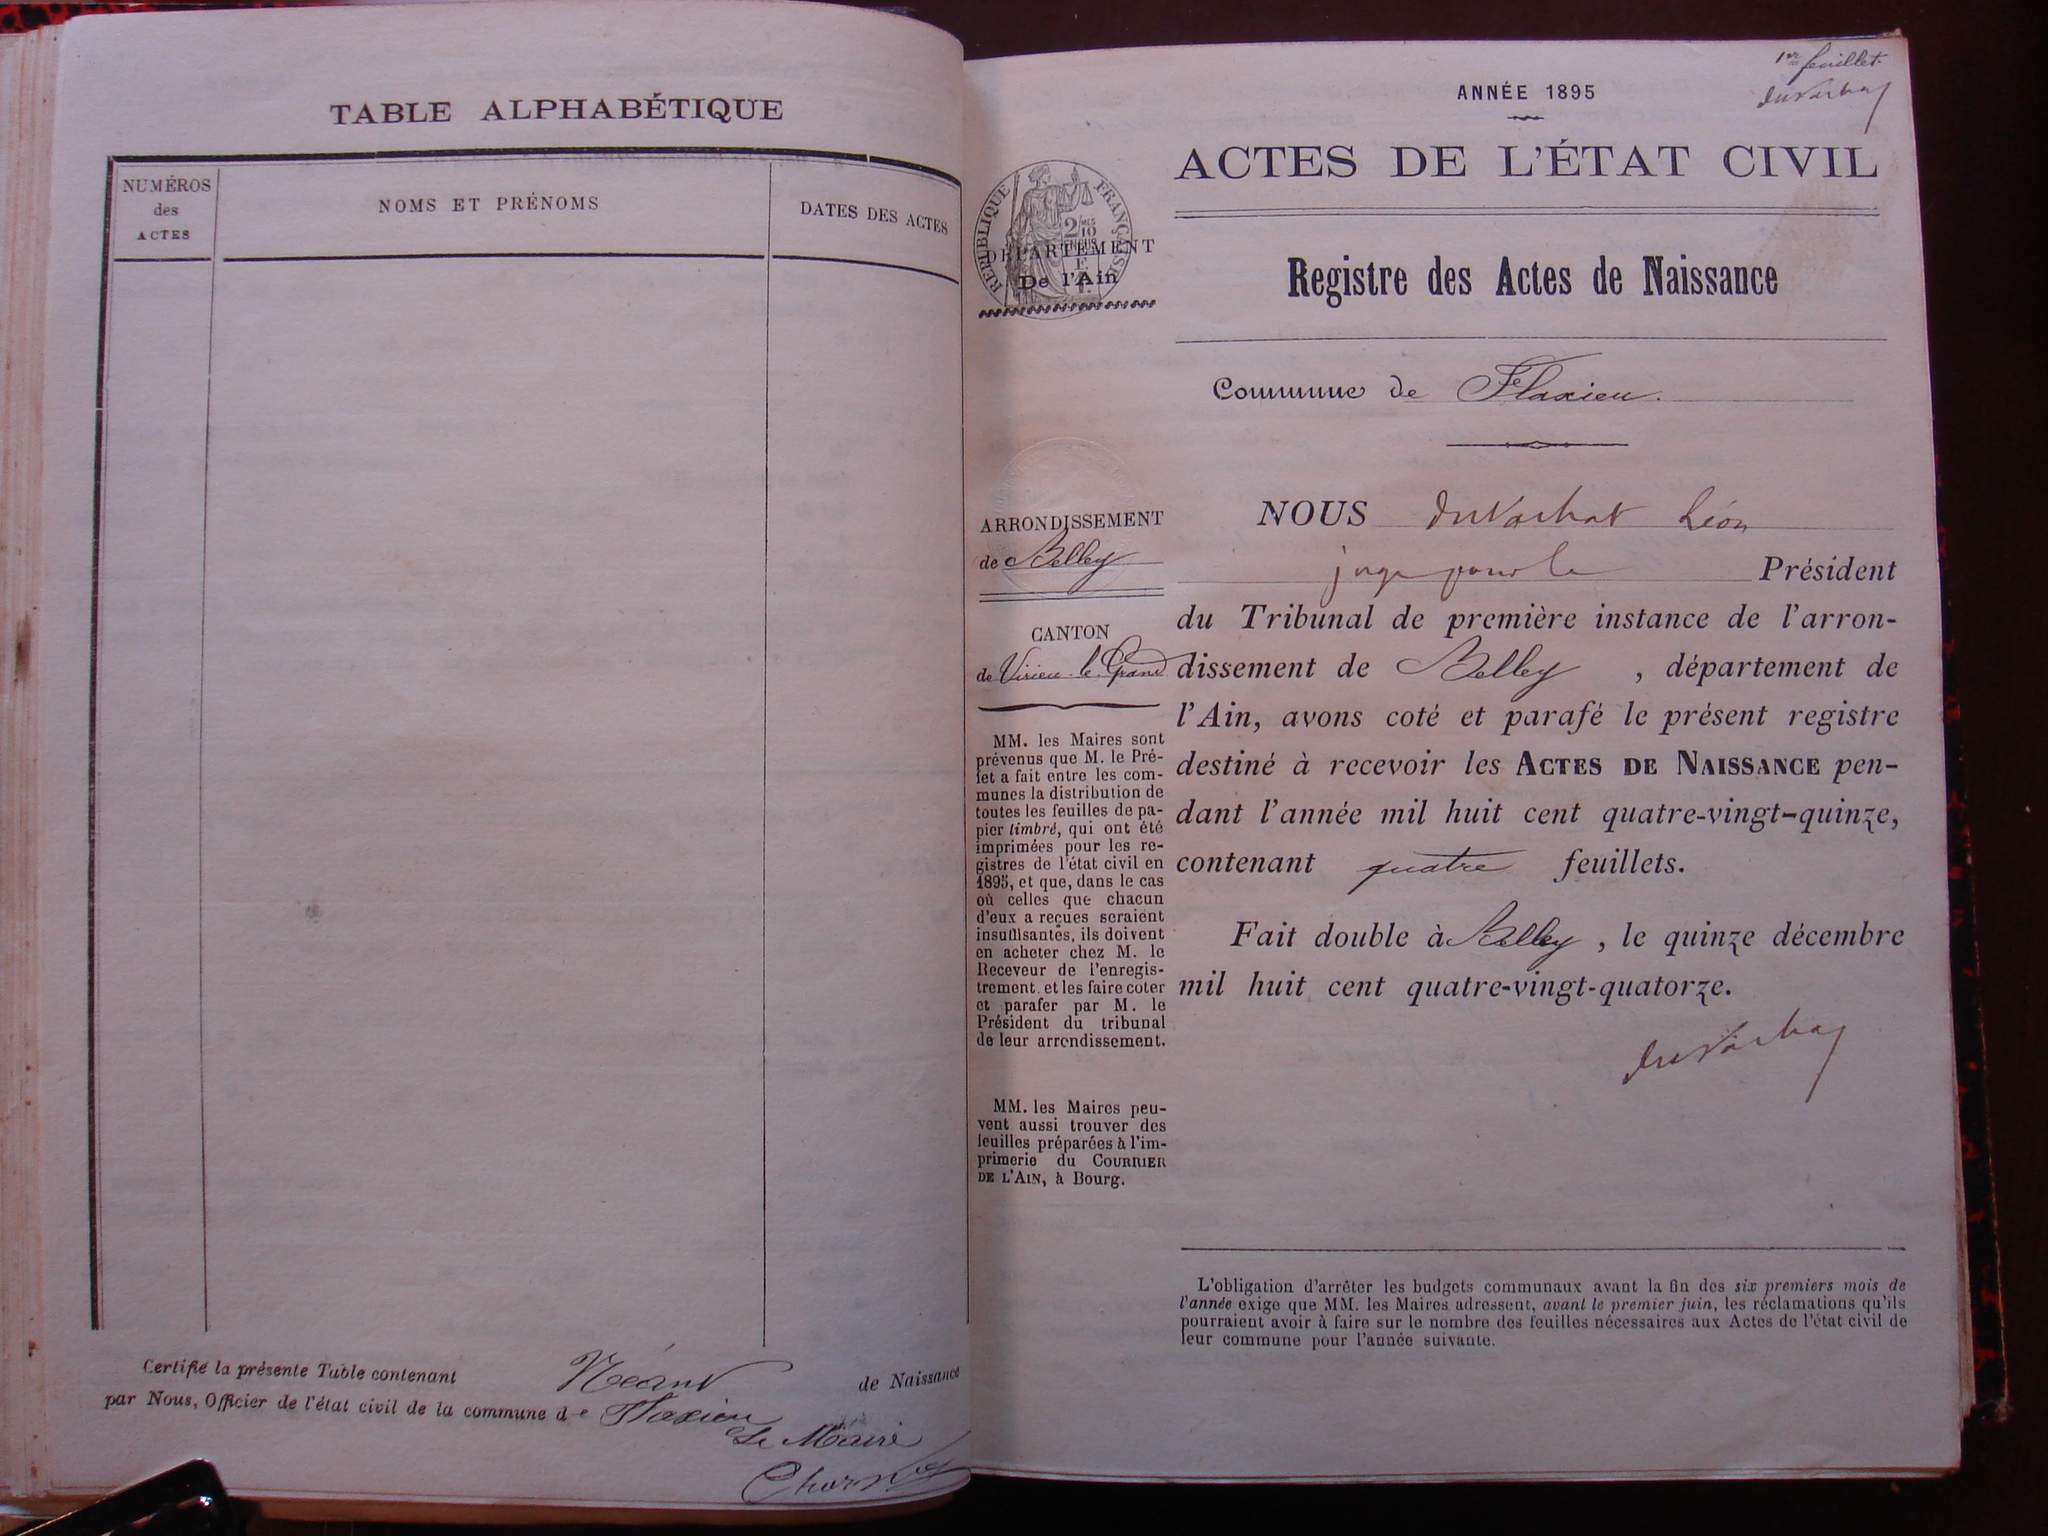 TABLE ALPHABÉTIQUE
NUMÉROS
des
ACTES
NOMS ET PRÉNOMS
DATES DES ACTES
Certifié la présente Table contenant Néant de Naissance
par Nous, Officier de l'état civil de la commune de Flaxieu
Le Maire
1er feuillet
ANNÉE 1895
ACTES DE L'ÉTAT CIVIL
RÉPUBLIQUE FRANÇAISE
2/10
DÉPARTEMENT
De l'Ain
Registre des Actes de Naissance
Commune de Flaxieu.
ARRONDISSEMENT
de Belley
CANTON
de Virieu-le-Grand
MM. les Maires sont
prévenus que M. le Pré-
fet a fait entre les com-
munes la distribution de
toutes les feuilles de pa-
pier timbré, qui ont été
imprimées pour les re-
gistres de l'état civil en
1895, et que, dans le cas
où celles que chacun
d'eux a reçues seraient
insuffisantes, ils doivent
en acheter chez M. le
Receveur de l'enregis-
trement. et les faire coter
et parafer par M. le
Président du tribunal
de leur arrondissement.
MM. les Maires peu-
vent aussi trouver des
feuilles préparées à l'im-
primerie du COURRIER
DE L'AIN, à Bourg.
NOUS Duvachat Léon
juge pour le Président
du Tribunal de première instance de l'arron-
dissement de Belley , département de
l'Ain, avons coté et parafé le présent registre
destiné à recevoir les ACTES DE NAISSANCE pen-
dant l'année mil huit cent quatre-vingt-quinze,
contenant quatre feuillets.
Fait double à Belley , le quinze décembre
mil huit cent quatre-vingt-quatorze.
L'obligation d'arrêter les budgets communaux avant la fin des six premiers mois de
l'année exige que MM. les Maires adressent, avant le premier juin, les réclamations qu'ils
pourraient avoir à faire sur le nombre des feuilles nécessaires aux Actes de l'état civil de
leur commune pour l'année suivante.